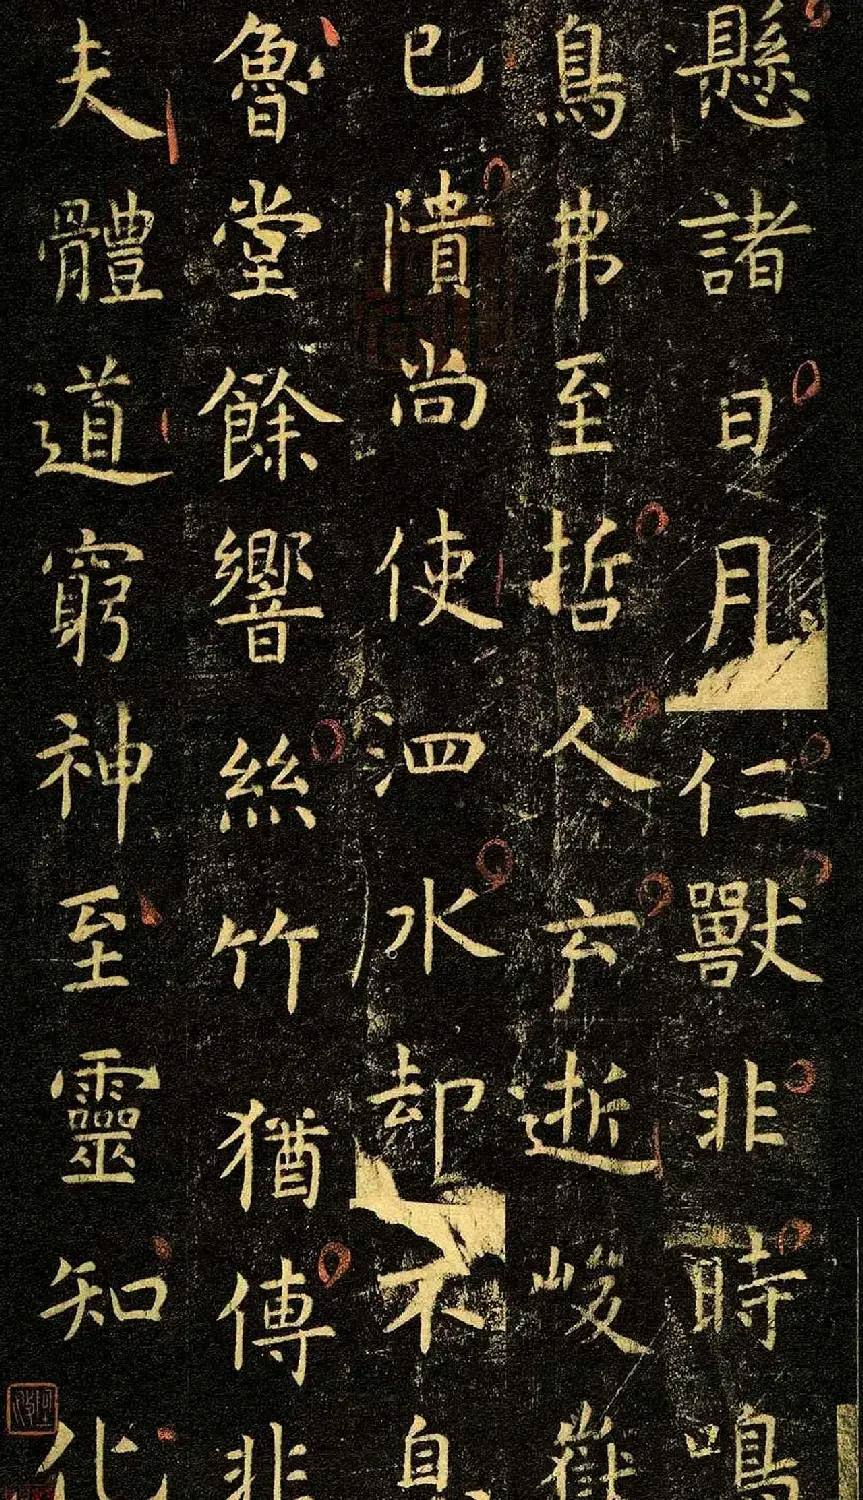 懸諸日月仁獸非時鳴
鳥弗至哲人云逝峻嶽
已隤尚使泗水却不息
魯堂餘響絲竹猶傳非
夫體道窮神至靈知化